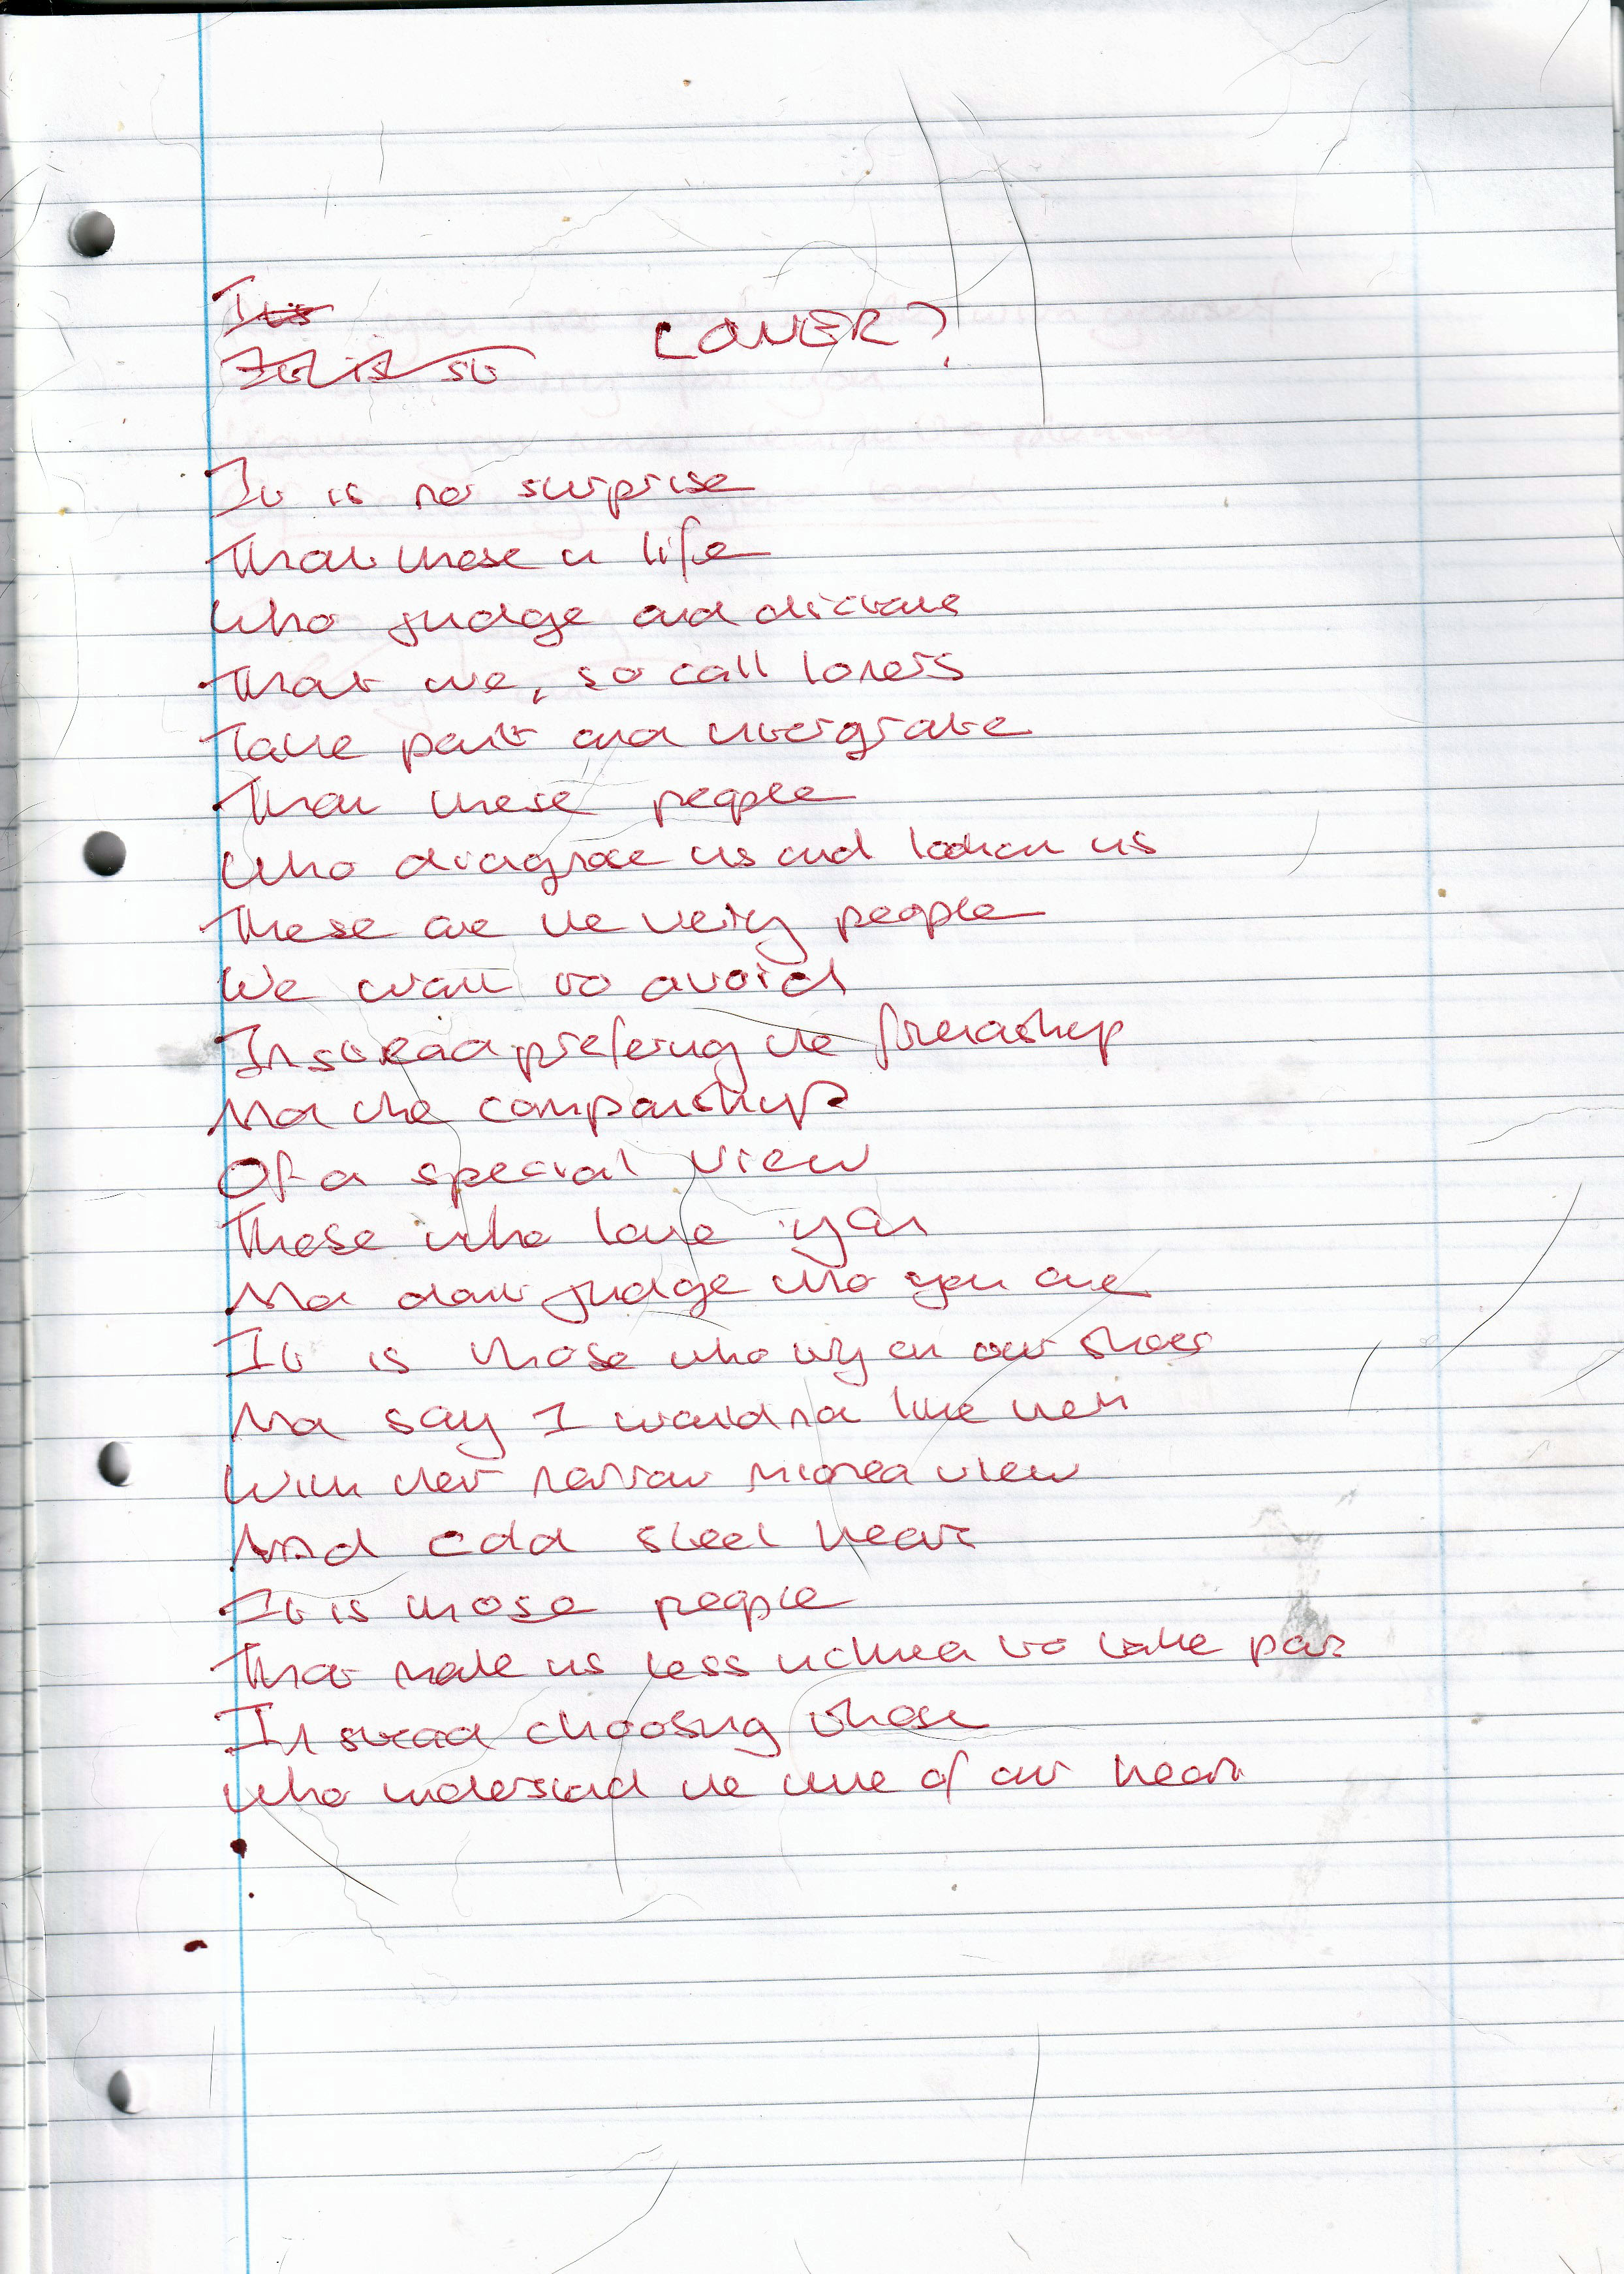 LONER?
It is no surprise
That those in life
Who judge and dictate
That we, so call loners
Take part and intergrate
That these people
Who diagnose us and look on us
These are the very people
We want to avoid
Instead prefering the friendship
And the companship
Of a special view
Those who love you
And dont judge who you are
It is those who on our shoes
And say I would not like them
With their narrow minded view
And cold steel heart
It is those people
That make us less inclined to take part
Instead choosing those
Who understand the true of our heart